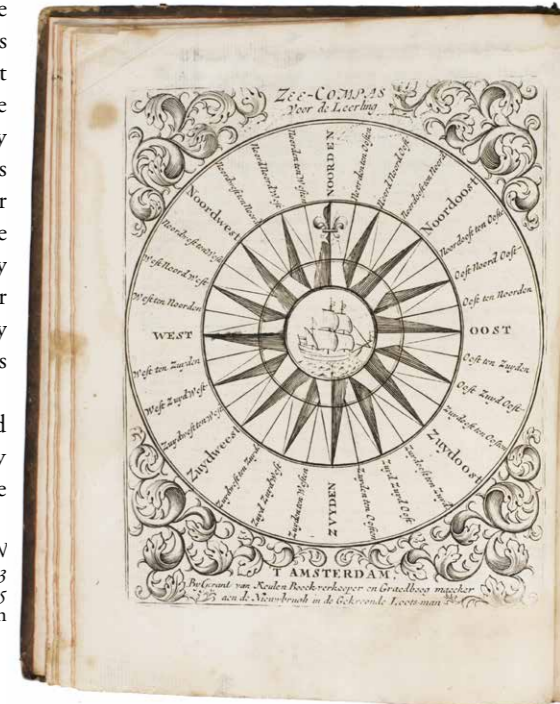 e
s
t
e
y
s
r
e
y
r
y
s
d
y
e
N
3
5
n
ZEE-COMPAS
Voor de Leerling
NOORDEN
Noorden ten Oosten
Noord Noord Oost
Noordoost ten Noorden
Noordoost
Noordoost ten Oosten
Oost Noord Oost
Oost ten Noorden
OOST
Oost ten Zuyden
Oost Zuyd Oost
Zuydoost ten Oosten
Zuydoost
Zuydoost ten Zuyden
Zuyd Zuyd Oost
Zuyden ten Oosten
ZVYDEN
Zuyden ten Westen
Zuyd Zuyd West
Zuydwest ten Zuyd
Zuydweest
Zuydwest ten West
West Zuyd West
West ten Zuyden
WEST
West ten Noorden
West Noord West
Noordwest ten West
Noordwest
Noordwest ten Noord
Noord Noord West
Noorden ten Westen
T AMSTERDAM,
By Gerant van Keulen Boeckverkooper en Graedboog maecker
aen de Nieuwbrugh in de Gekroonde Loots-man